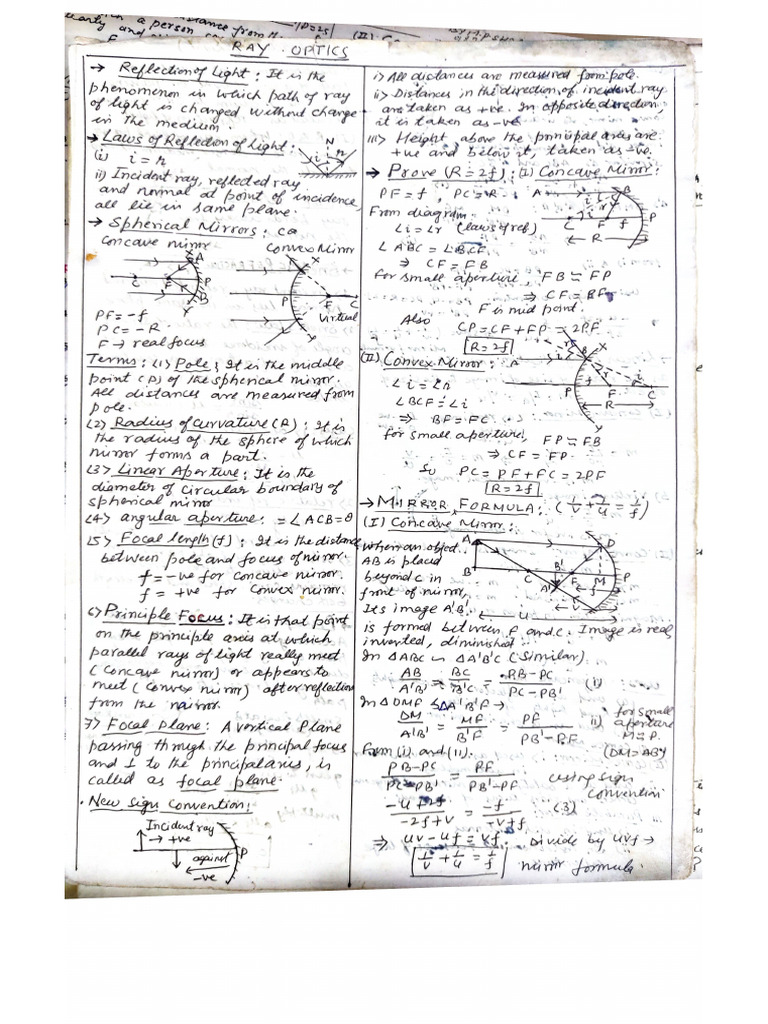 RAY OPTICS
→ Reflection of Light : It is the
phenomenon in which path of ray
of light is changed without change
in the medium.
→ Laws of Reflection of Light :
(i) i = r
ii) Incident ray, reflected ray
and normal at point of incidence,
all lie in same plane.
N
i r
→ Spherical Mirrors :
Concave mirror
Convex Mirror
PF = -f
PC = -R
F → real focus
Virtual
Terms : (1) Pole ; It is the middle
point (P) of the spherical mirror.
All distances are measured from
pole.
(2) Radius of curvature (R) : It is
the radius of the sphere of which
mirror forms a part.
(3) Linear Aperture : It is the
diameter of circular boundary of
spherical mirror
(4) angular aperture : = ∠ACB = θ
(5) Focal length (f) : It is the distance
between pole and focus of mirror.
f = -ve for concave mirror.
f = +ve for Convex mirror.
6) Principle Focus : It is that point
on the principle axis at which
parallel rays of light really meet
(Concave mirror) or appears to
meet (Convex mirror) after reflection
from the mirror.
7) Focal plane : A vertical Plane
passing through the principal focus
and ⊥ to the principal axis, is
called as focal plane.
. New sign convention :
Incident ray
→ +ve
against
P
← -ve
i) All distances are measured from pole.
ii) Distances in the direction of incident ray
are taken as +ve. In opposite direction,
it is taken as -ve
iii) Height above the principal axis are
+ve and below it, taken as -ve.
→ Prove (R = 2f) : (I) Concave Mirror :
PF = f, PC = R.
From diagram
∠i = ∠r (laws of ref)
∠ABC = ∠BCF
⇒ CF = FB
For small aperture, FB ≈ FP
⇒ CF = PF
F is mid point.
Also
CP = CF + FP = 2PF
R = 2f
(II) Convex Mirror :
∠i = ∠r
∠BCF = ∠i
⇒ BF = FC
for small aperture, FP ≈ FB
⇒ CF = FP
So PC = PF + FC = 2PF
R = 2f
→ MIRROR FORMULA : (1/v + 1/u = 1/f)
(I) Concave Mirror :
when an object
AB is placed
beyond C in
front of mirror,
Its image A'B'
is formed between F and C. Image is real,
inverted, diminished
In ΔABC ∽ ΔA'B'C (Similar)
AB/A'B' = BC/B'C = PB-PC/PC-PB' (i)
In ΔDMF & ΔA'B'F →
DM/A'B' = MF/B'F = PF/PB'-PF ii)
for small
aperture
M ≈ P.
(DM = AB)
From (i) and (ii).
PB-PC/PC-PB' = PF/PB'-PF
using sign
convention
-u+2f/-2f+v = -f/-v+f (3)
⇒ uv - uf = vf. Divide by uvf →
1/v + 1/u = 1/f mirror formula.